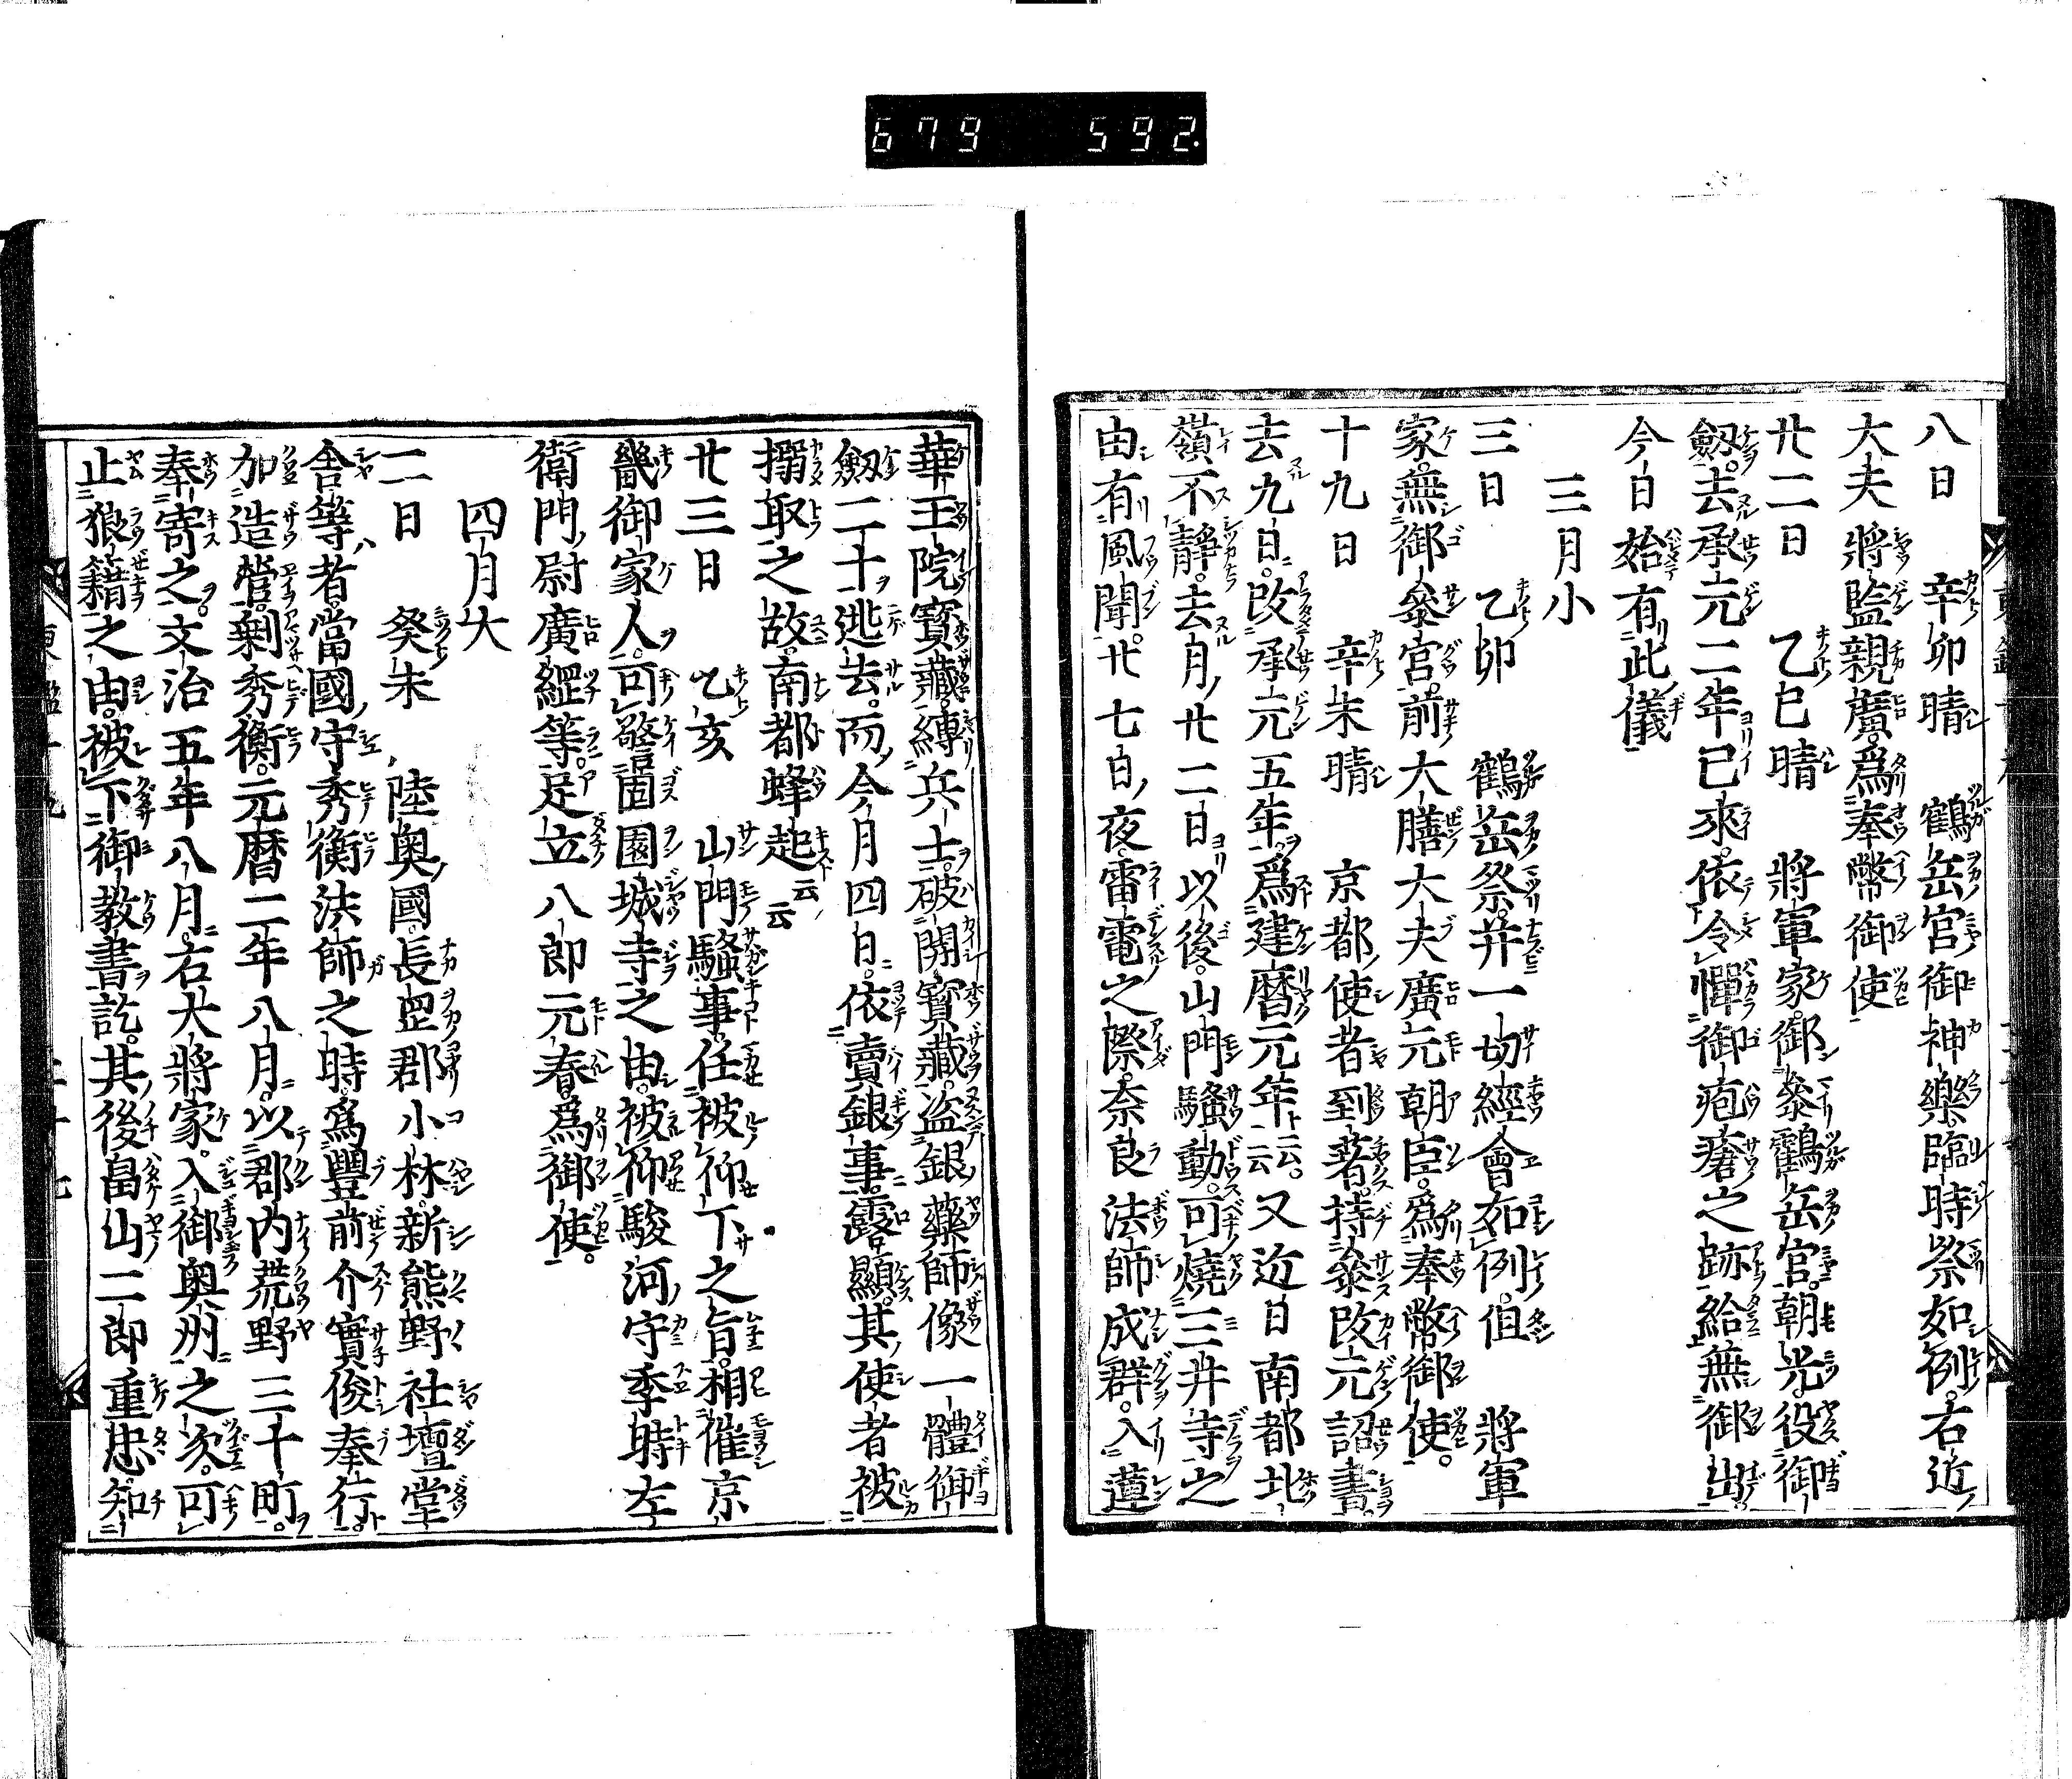 679 592
八日 辛卯晴 鶴岳宮御神樂臨時祭如例右近
大夫將監親廣爲奉幣御使
廿二日 乙巳晴 將軍家御參鶴岳宮朝光役御
劔去承元二年已來依令憚御疱瘡之跡給無御出
今日始有此儀
三月小
三日 乙卯 鶴岳祭并一切經會如例但 將軍
家無御參宮前大膳大夫廣元朝臣爲奉幣御使
十九日 辛未晴 京都使者到著持參改元詔書
去九日改承元五年爲建曆元年云云又近日南都北
嶺不靜去月廿二日以後山門騷動可燒三井寺之
由有風聞廿七日夜雷電之際奈良法師成群入蓮
華王院寶藏縛兵士破開寶藏盜銀藥師像一體御
劔二十逃去而今月四日依賣銀事露顯其使者被
搦取之故南都蜂起云云
廿三日 乙亥 山門騷事任被仰下之旨相催京
畿御家人可警固園城寺之由被仰駿河守季時左
衛門尉廣綱等足立八郎元春爲御使
四月大
二日 癸未 陸奧國長罡郡小林新熊野社壇堂
舍等者當國守秀衡法師之時爲豐前介實俊奉行
加造營剩秀衡元曆二年八月以郡內荒野三十町
奉寄之文治五年八月右大將家入御奧州之次可
止狼籍之由被下御教書訖其後畠山二郎重忠知